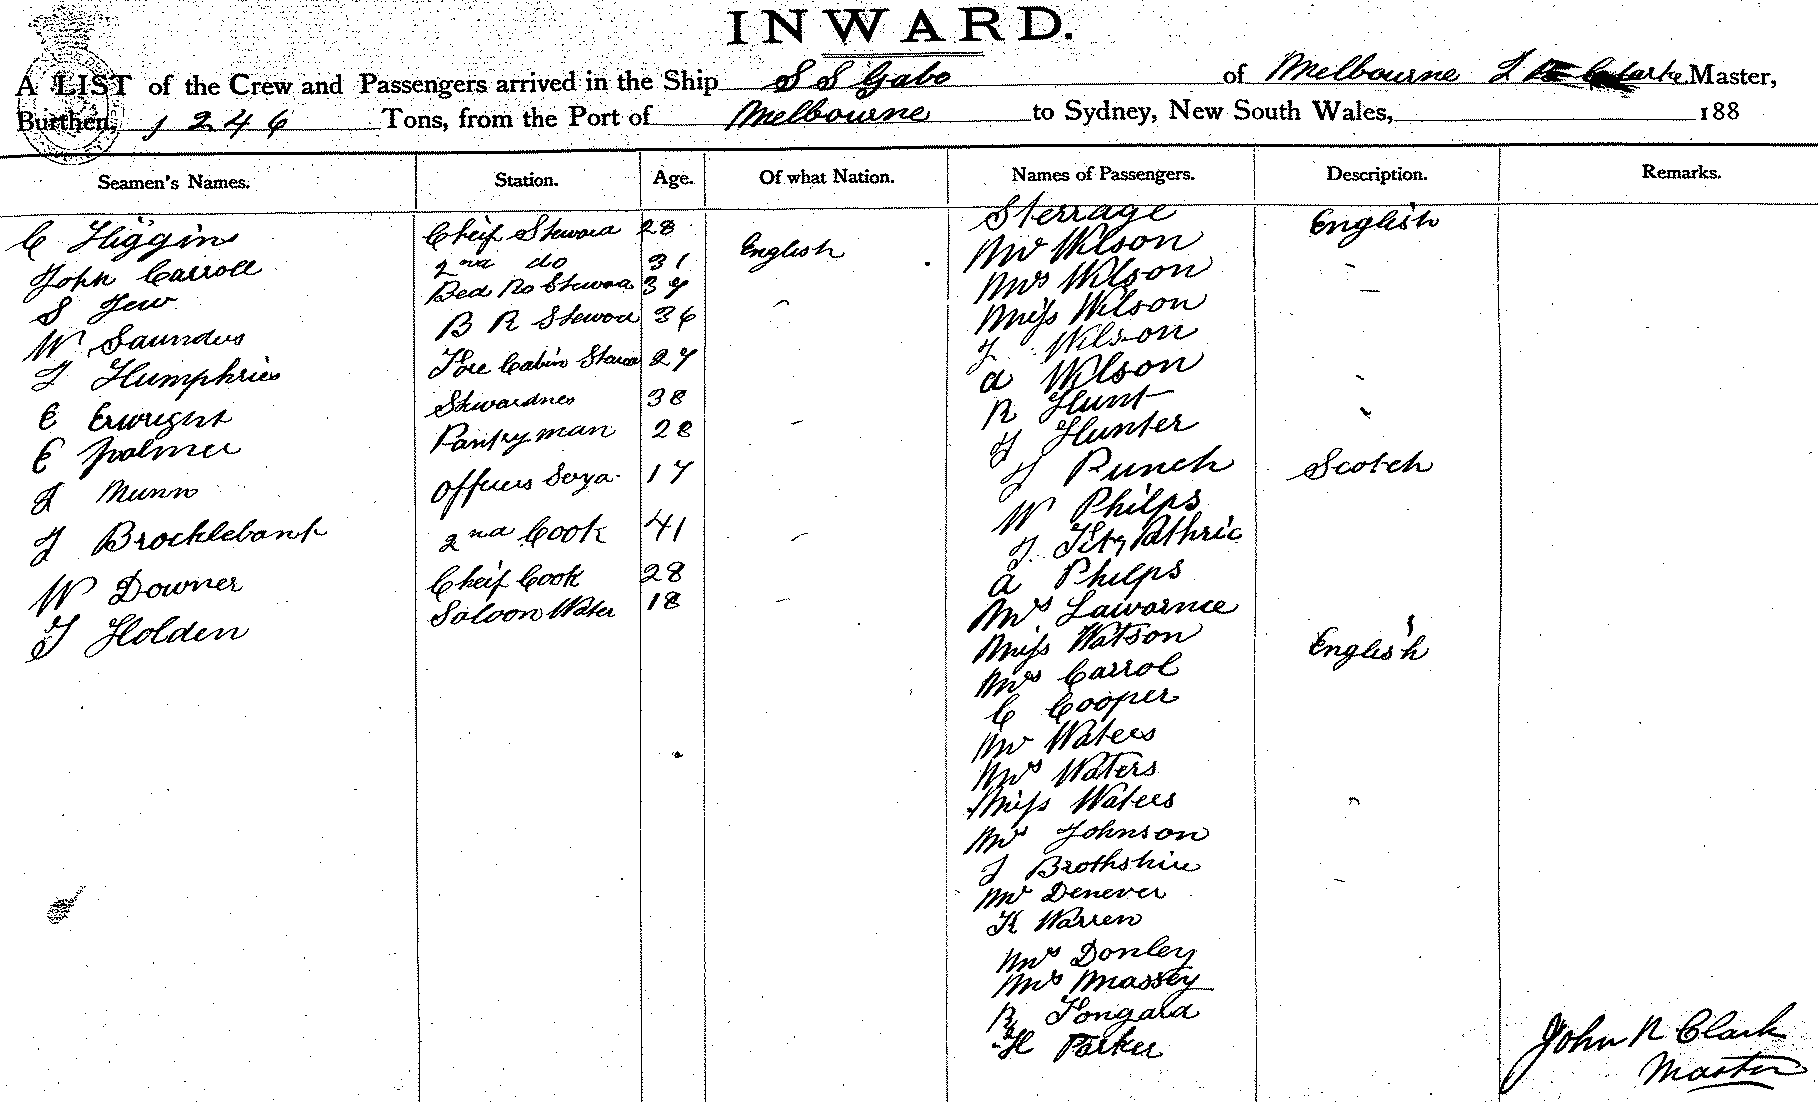 INWARD.
A LIST of the Crew and Passengers arrived in the Ship S S Gabo of Melbourne J Clarke Master,
Burthen, 1246 Tons, from the Port of Melbourne to Sydney, New South Wales, 188
Seamen's Names. Station. Age. Of what Nation. Names of Passengers. Description. Remarks.
Sterrage English
C Higgins Cheif Steward 28 English Mr Wilson
John Carroll 2nd do 31 Mrs Wilson
S Jew Bed Ro Steward 37 Miss Wilson
W Saunders B R Steward 36 J Wilson
J Humphries Fore Cabin Steward 27 A Wilson
E Erwright Stewardness 38 R Hunt
E Palmer Pantryman 28 J Hunter
J Munn Officers Serva 17 J Punch Scotch
W Philps
J Brocklebank 2nd Cook 41 J Fitz Pathric
W Downer Cheif Cook 28 A Philps
J Holden Saloon Water 18 Mrs Lawarnce
Miss Watson English
Mrs Carrol
C Cooper
Mr Waters
Mrs Waters
Miss Waters
Mr Johnson
J Brothshire
Mr Denever
K Warren
Mrs Donley
Mrs Massey
R Tongard
H Parker
John R Clark
Master